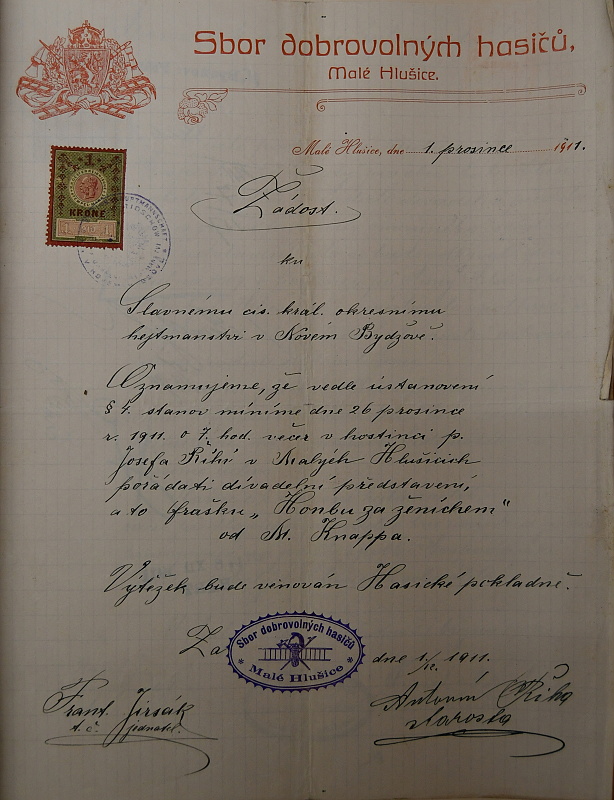 Sbor dobrovolných hasičů,
Malé Hlušice.
Malé Hlušice, dne 1. prosince 1911.
1
KRONE
Žádost.
ku
Slavnému cis. král. okresnímu
hejtmanství v Novém Bydžově.
Oznamujeme, že vedle ustanovení
§ 4. stanov míníme dne 26 prosince
r. 1911 o 7. hod. večer v hostinci p.
Josefa Říhy v Malých Hlušicích
pořádati divadelní představení,
a to frašku „Honbu za ženichem"
od M. Knappa.
Výtěžek bude věnován Hasické pokladně.
Za
Sbor dobrovolných hasičů
Malé Hlušice
dne 1/12. 1911.
Frant. Jirsák
t. č. jednatel.
Antonín Říha
starosta